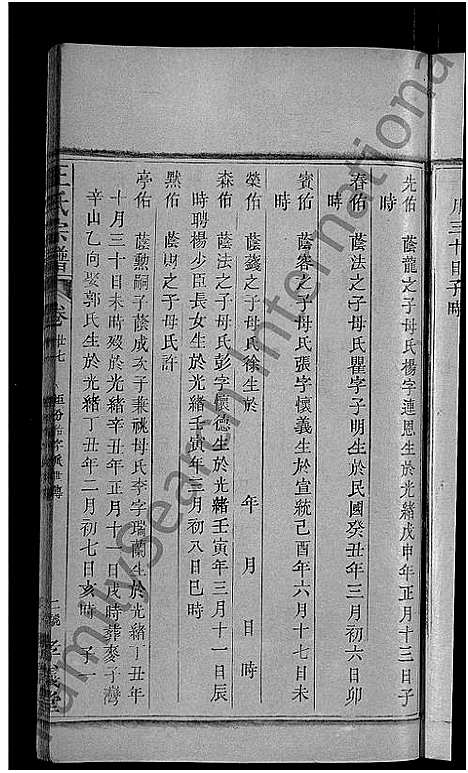 月三十日子時
先佑 蔭龍之子母氏楊字連恩生於光緒戊申年正月十三日子
時
春佑 蔭法之子母氏瞿字子明生於民國癸丑年三月初六日卯
時
賓佑 蔭容之子母氏張字懷義生於宣統己酉年六月十七日未
時
榮佑 蔭錢之子母氏徐生於 年 月 日 時
森佑 蔭法之子母氏彭字懷德生於光緒壬寅年三月十一日辰
時聘楊少臣長女生於光緒壬寅年三月初八日巳時
默佑 蔭則之子母氏許
亭佑 蔭勲嗣子蔭成次子兼祧母氏李字瑞蘭生於光緒丁丑年
十月三十日未時歿於光緒辛丑年正月十一日戌時葬麥子灣
辛山乙向娶郭氏生於光緒丁丑年二月初七日亥時 子一
王氏宗譜 卷廿七
FamilySearch International